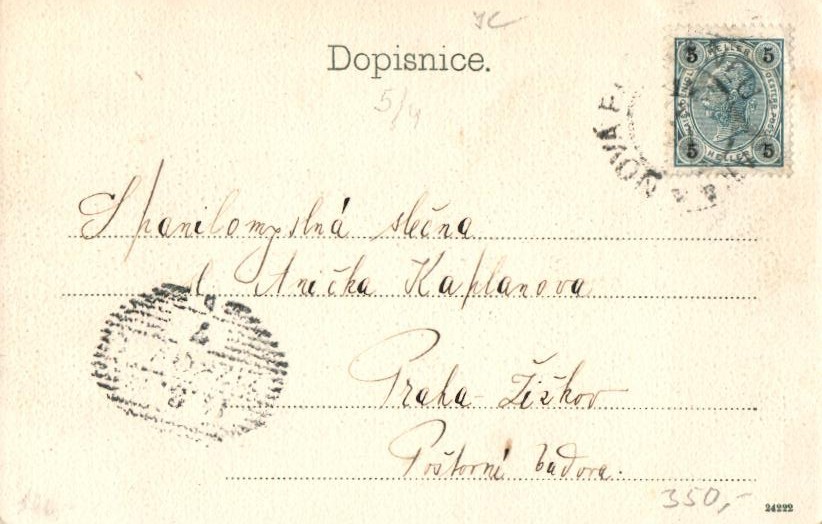 JC
Dopisnice.
5/4
5 HELLER 5
5 HELLER 5
NOVÁ
Spanilomyslná slečna
sl. Anička Kaplanova
Praha-Žižkov
Poštovní budova.
350,-
24222